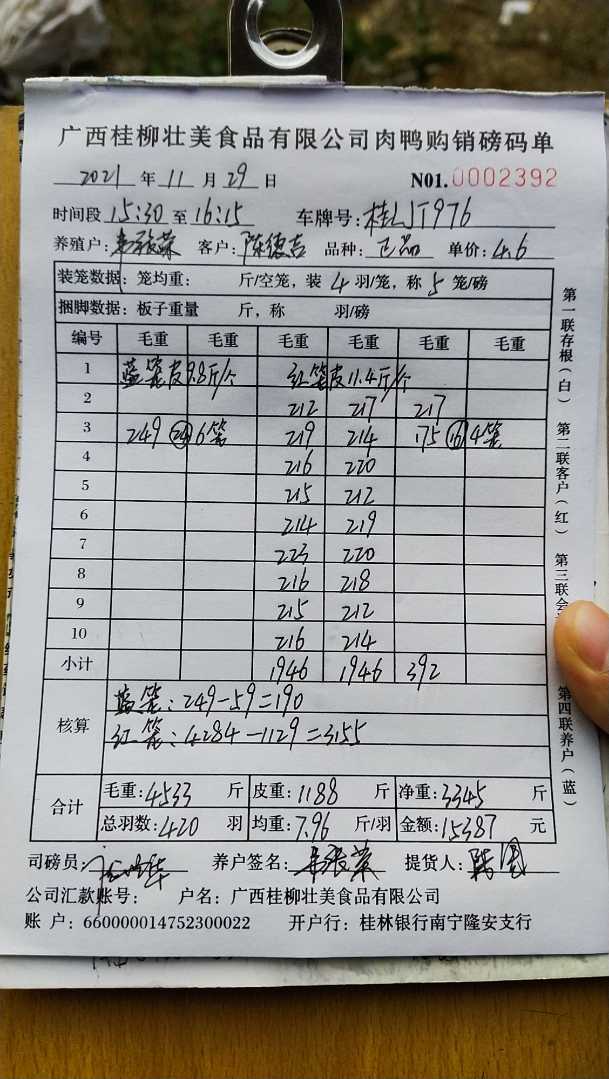 广西桂柳壮美食品有限公司肉鸭购销磅码单
2021 年 11 月 29 日 N01.0002392
时间段 15:30 至 16:15 车牌号: 桂LJT976
养殖户: 韦振荣 客户: 陈德吉 品种: 正品 单价: 4.6
装笼数据: 笼均重: 斤/空笼, 装 4 羽/笼, 称 5 笼/磅
捆脚数据: 板子重量 斤, 称 羽/磅
编号 毛重 毛重 毛重 毛重 毛重 毛重
1 蓝笼皮9.8斤/个 红笼皮11.4斤/个
2 212 217 217
3 249 24 6笼 219 214 175 16 4笼
4 216 220
5 215 212
6 214 219
7 223 220
8 216 218
9 215 212
10 216 214
小计 1946 1946 392
核算 蓝笼: 249-59=190
红笼: 4284-1129=3155
合计 毛重: 4533 斤 皮重: 1188 斤 净重: 3345 斤
总羽数: 420 羽 均重: 7.96 斤/羽 金额: 15387 元
司磅员: 养户签名: 韦振荣 提货人:
公司汇款账号: 户名: 广西桂柳壮美食品有限公司
账 户: 660000014752300022 开户行: 桂林银行南宁隆安支行
第一联存根(白)
第二联客户(红)
第三联会
第四联养户(蓝)